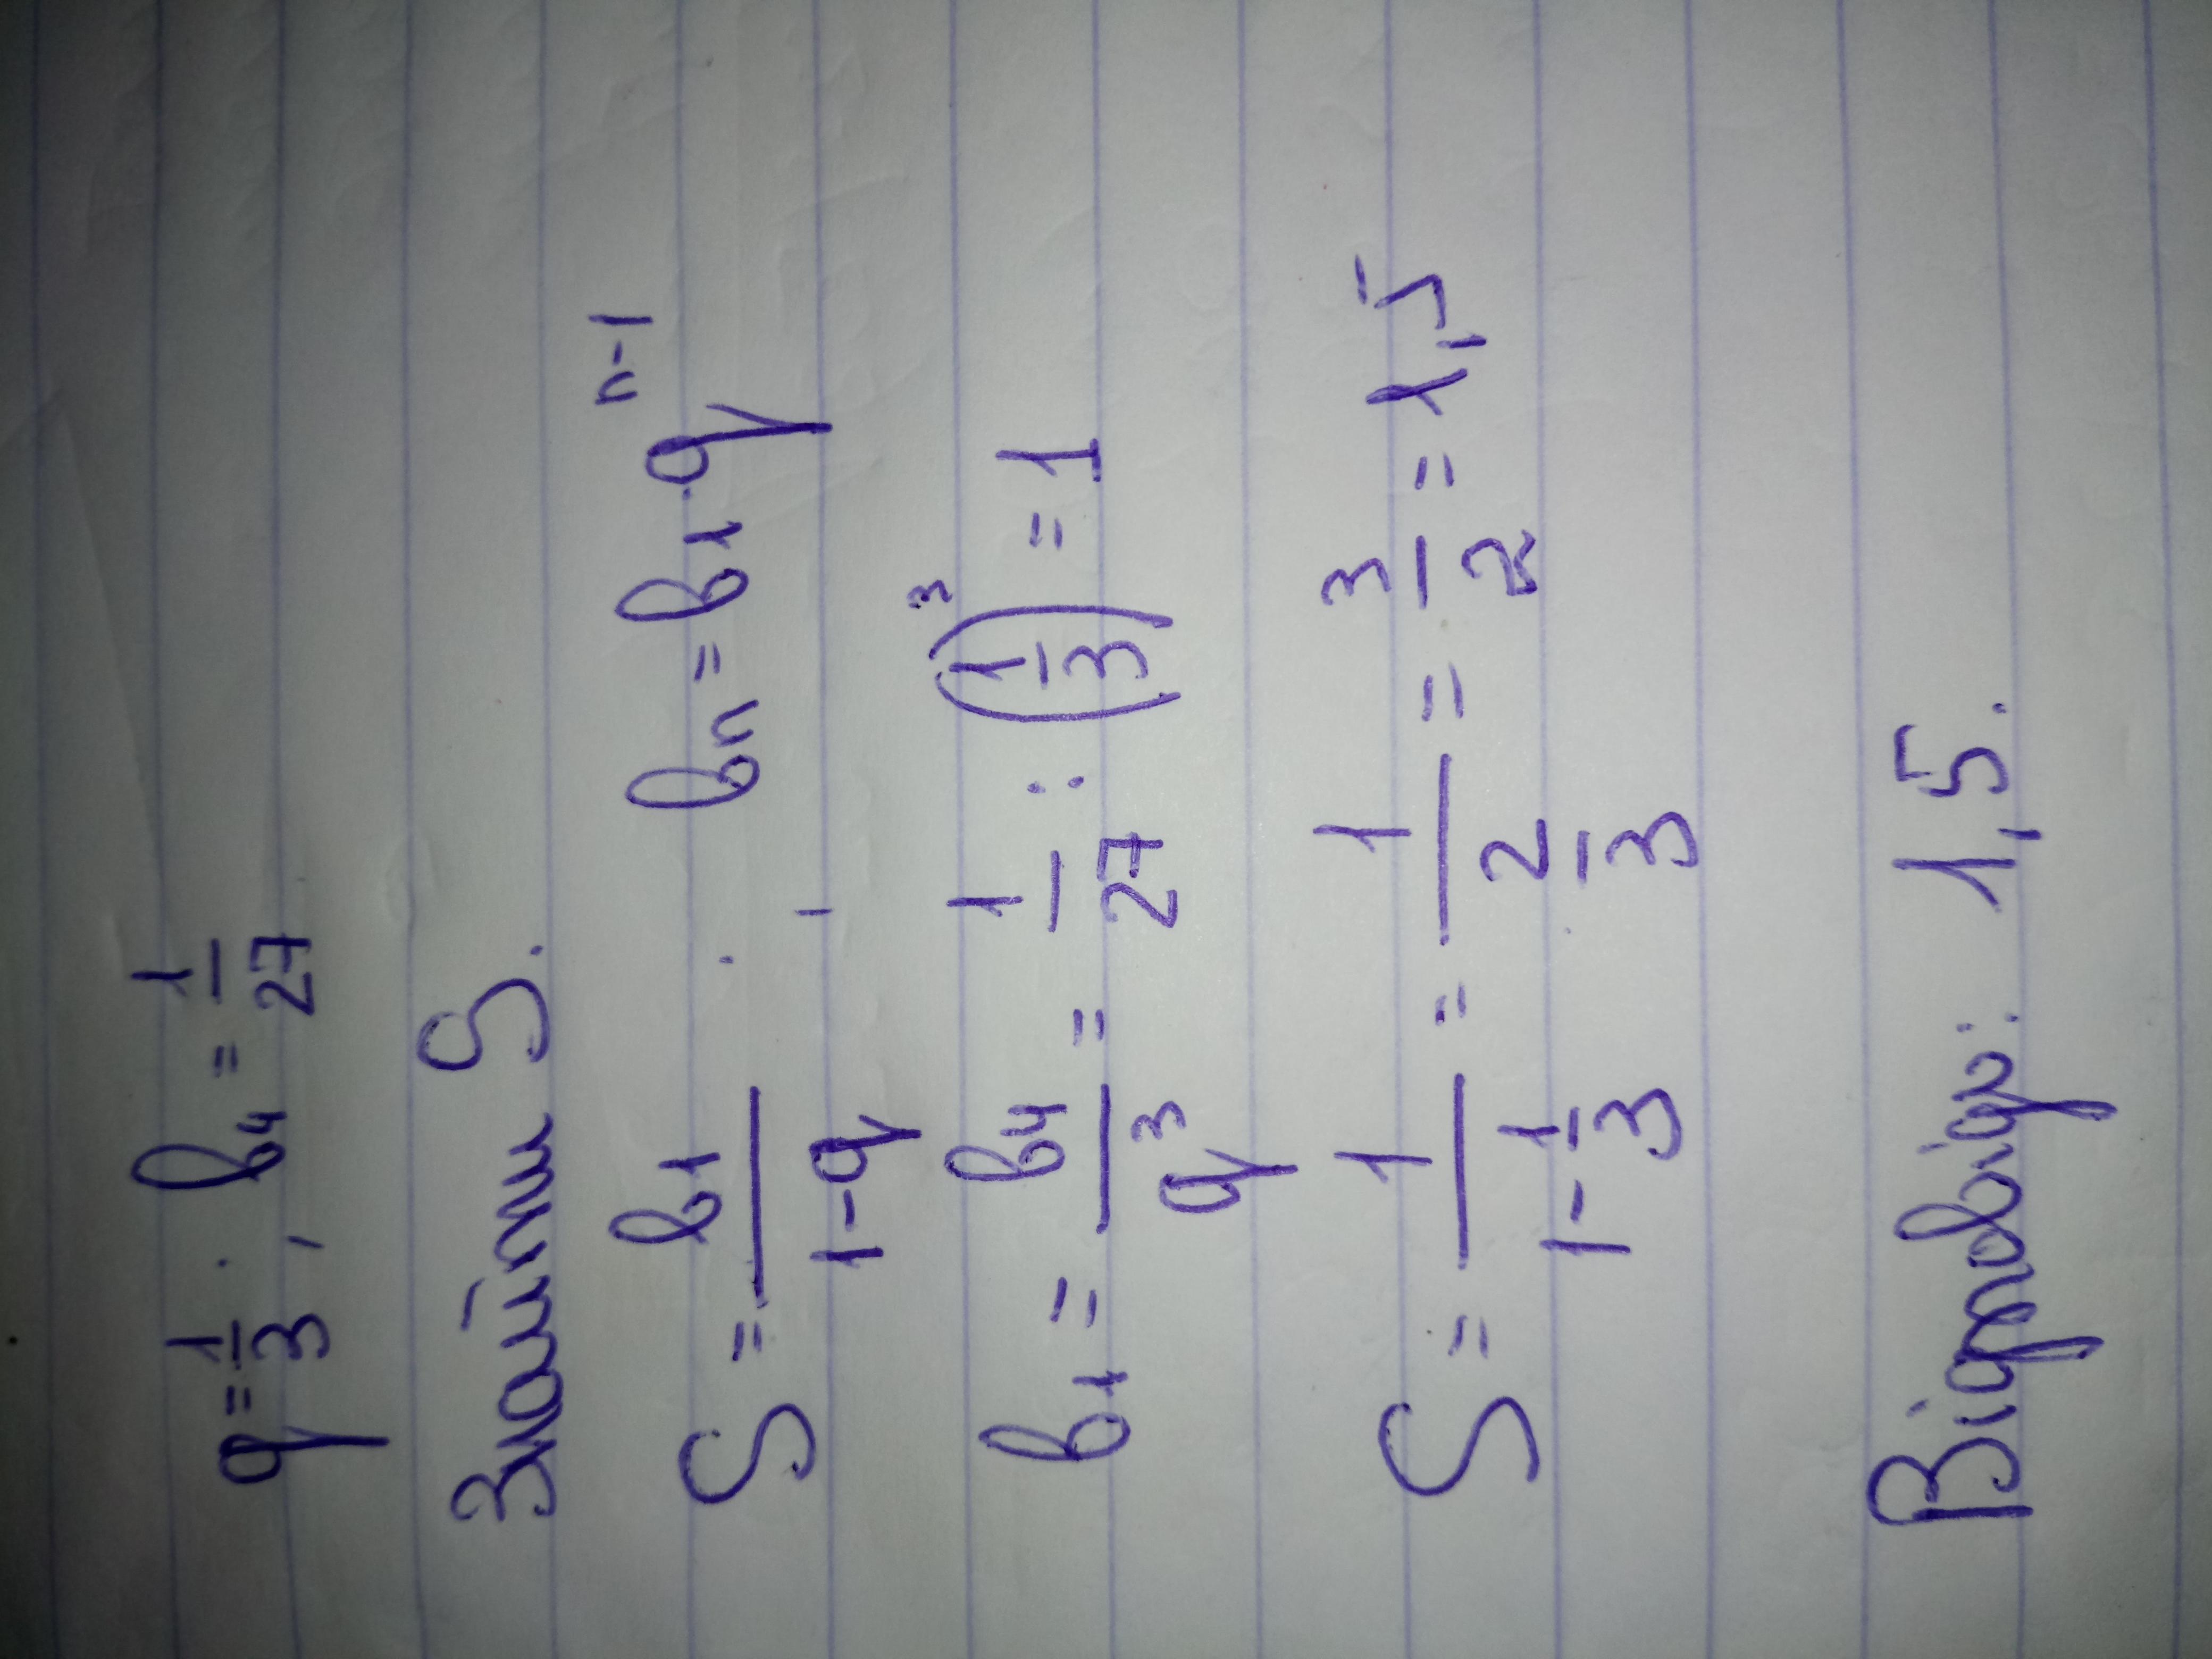 q = 1/3; b₄ = 1/27
Знайти S.
S = b₁/(1-q); bₙ = b₁·qⁿ⁻¹
b₁ = b₄/q³ = 1/27 : (1/3)³ = 1
S = 1/(1-1/3) = 1/(2/3) = 3/2 = 1,5
Відповідь: 1,5.